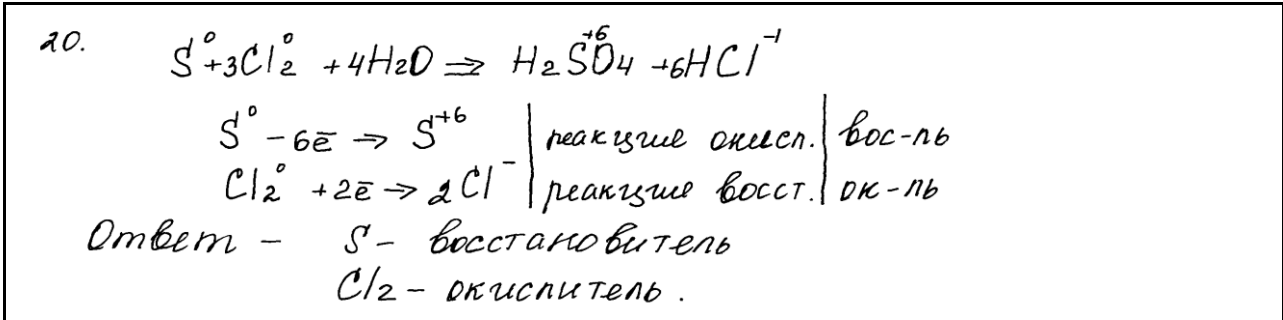 20. S⁰ + 3Cl₂⁰ + 4H₂O ⇒ H₂S⁺⁶O₄ + 6HCl⁻¹
S⁰ - 6ē → S⁺⁶ | реакция окисл. | вос-ль
Cl₂⁰ + 2ē → 2Cl⁻ | реакция восст. | ок-ль
Ответ - S - восстановитель
Cl2 - окислитель.